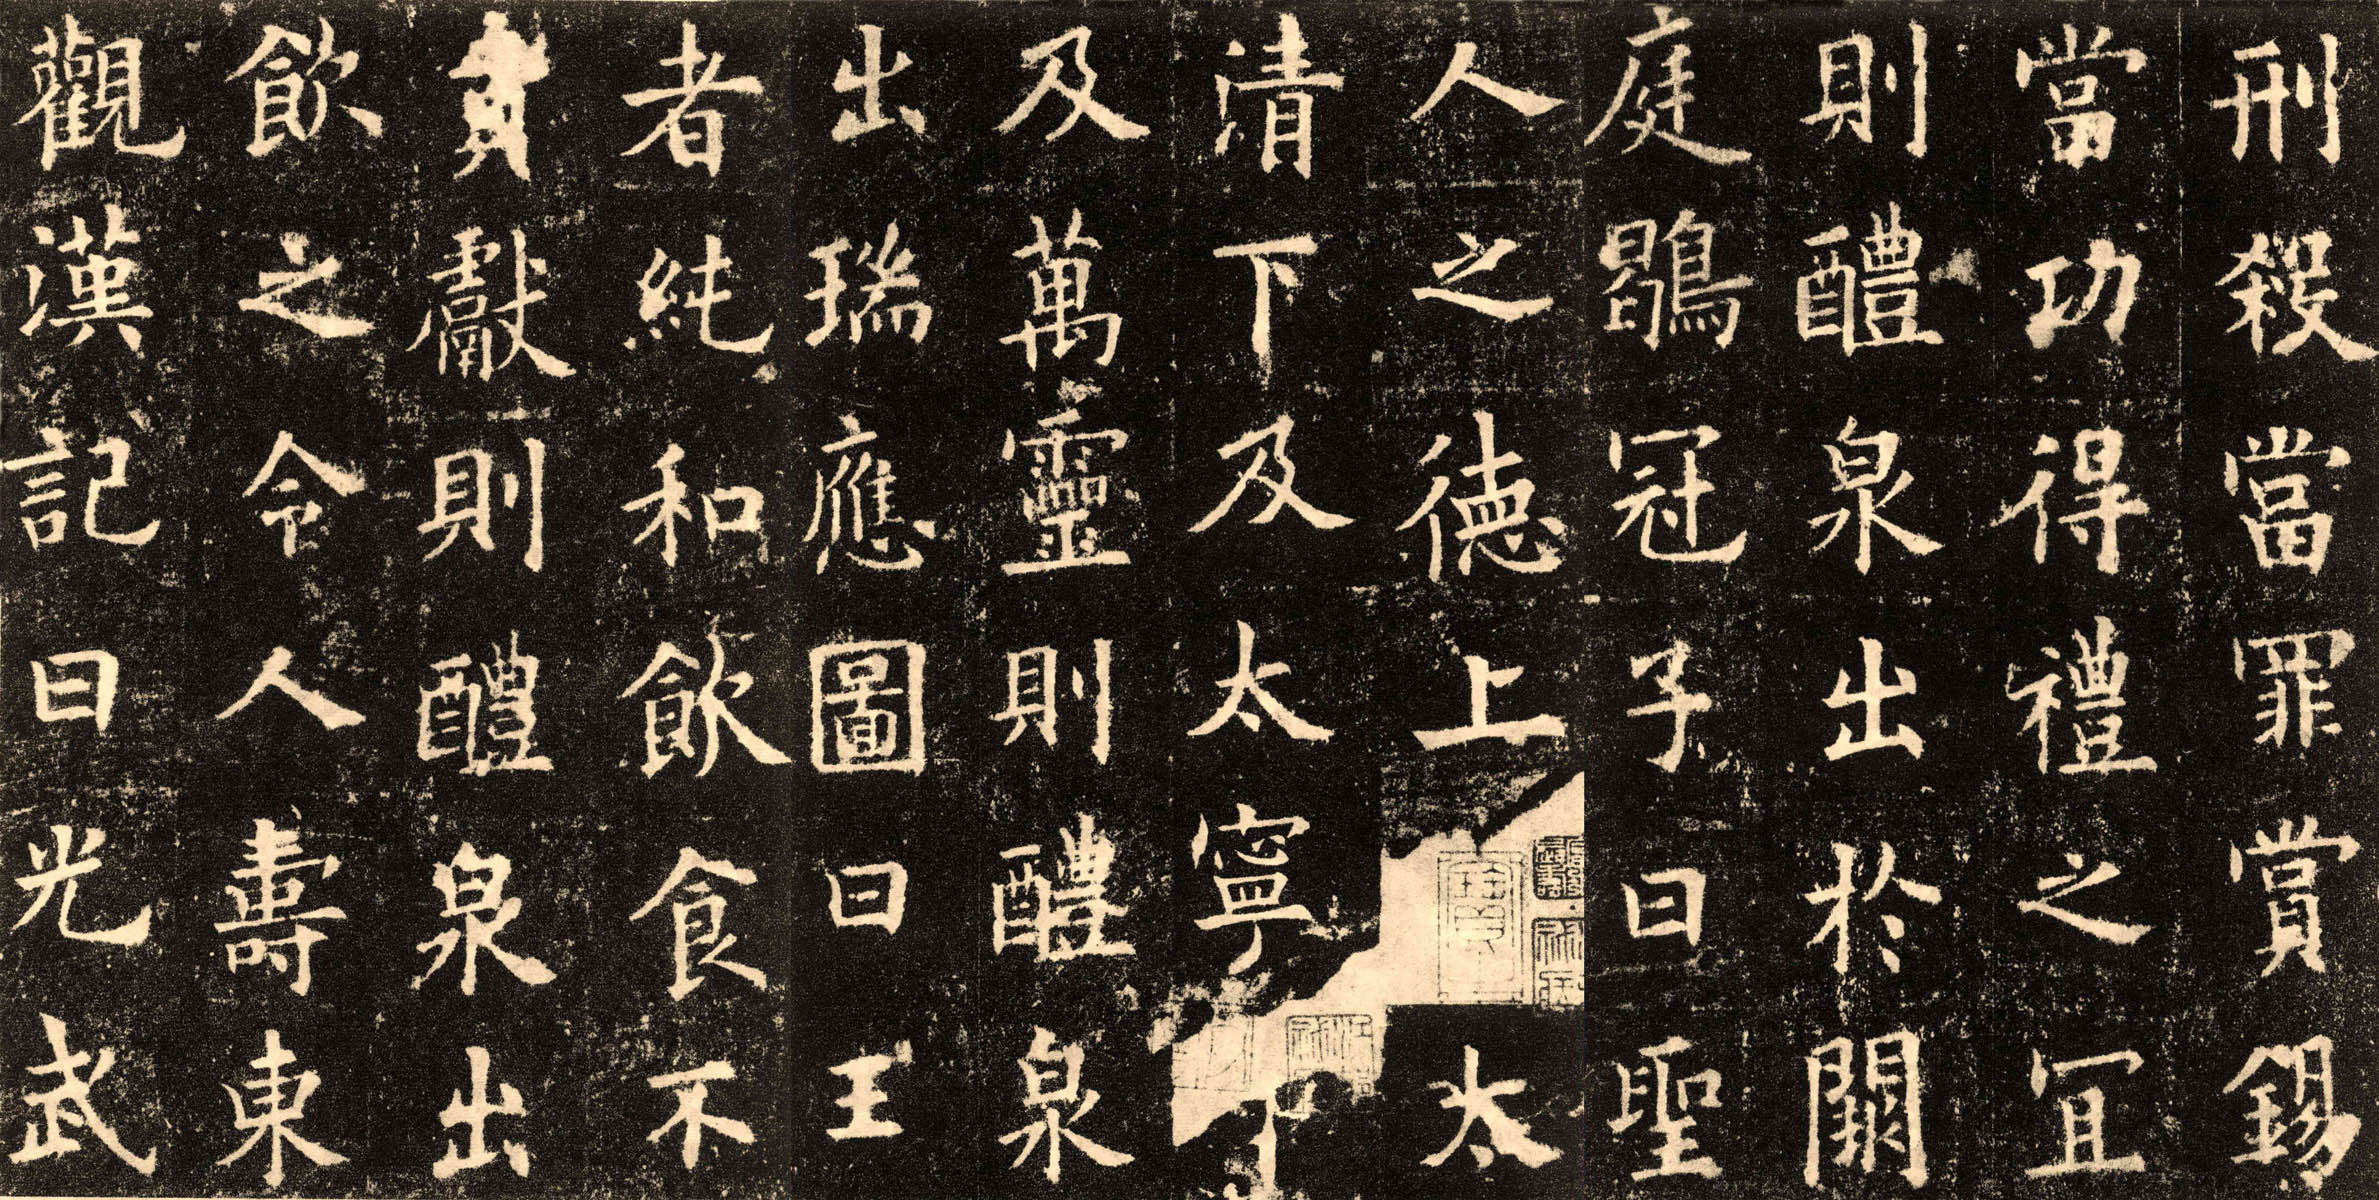 刑殺當罪賞錫
當功得禮之宜
則醴泉出於闕
庭鶡冠子曰聖
人之德上太
清下及太寧下
及萬靈則醴泉
出瑞應圖曰王
者純和飲食不
貢獻則醴泉出
飲之令人壽東
觀漢記曰光武